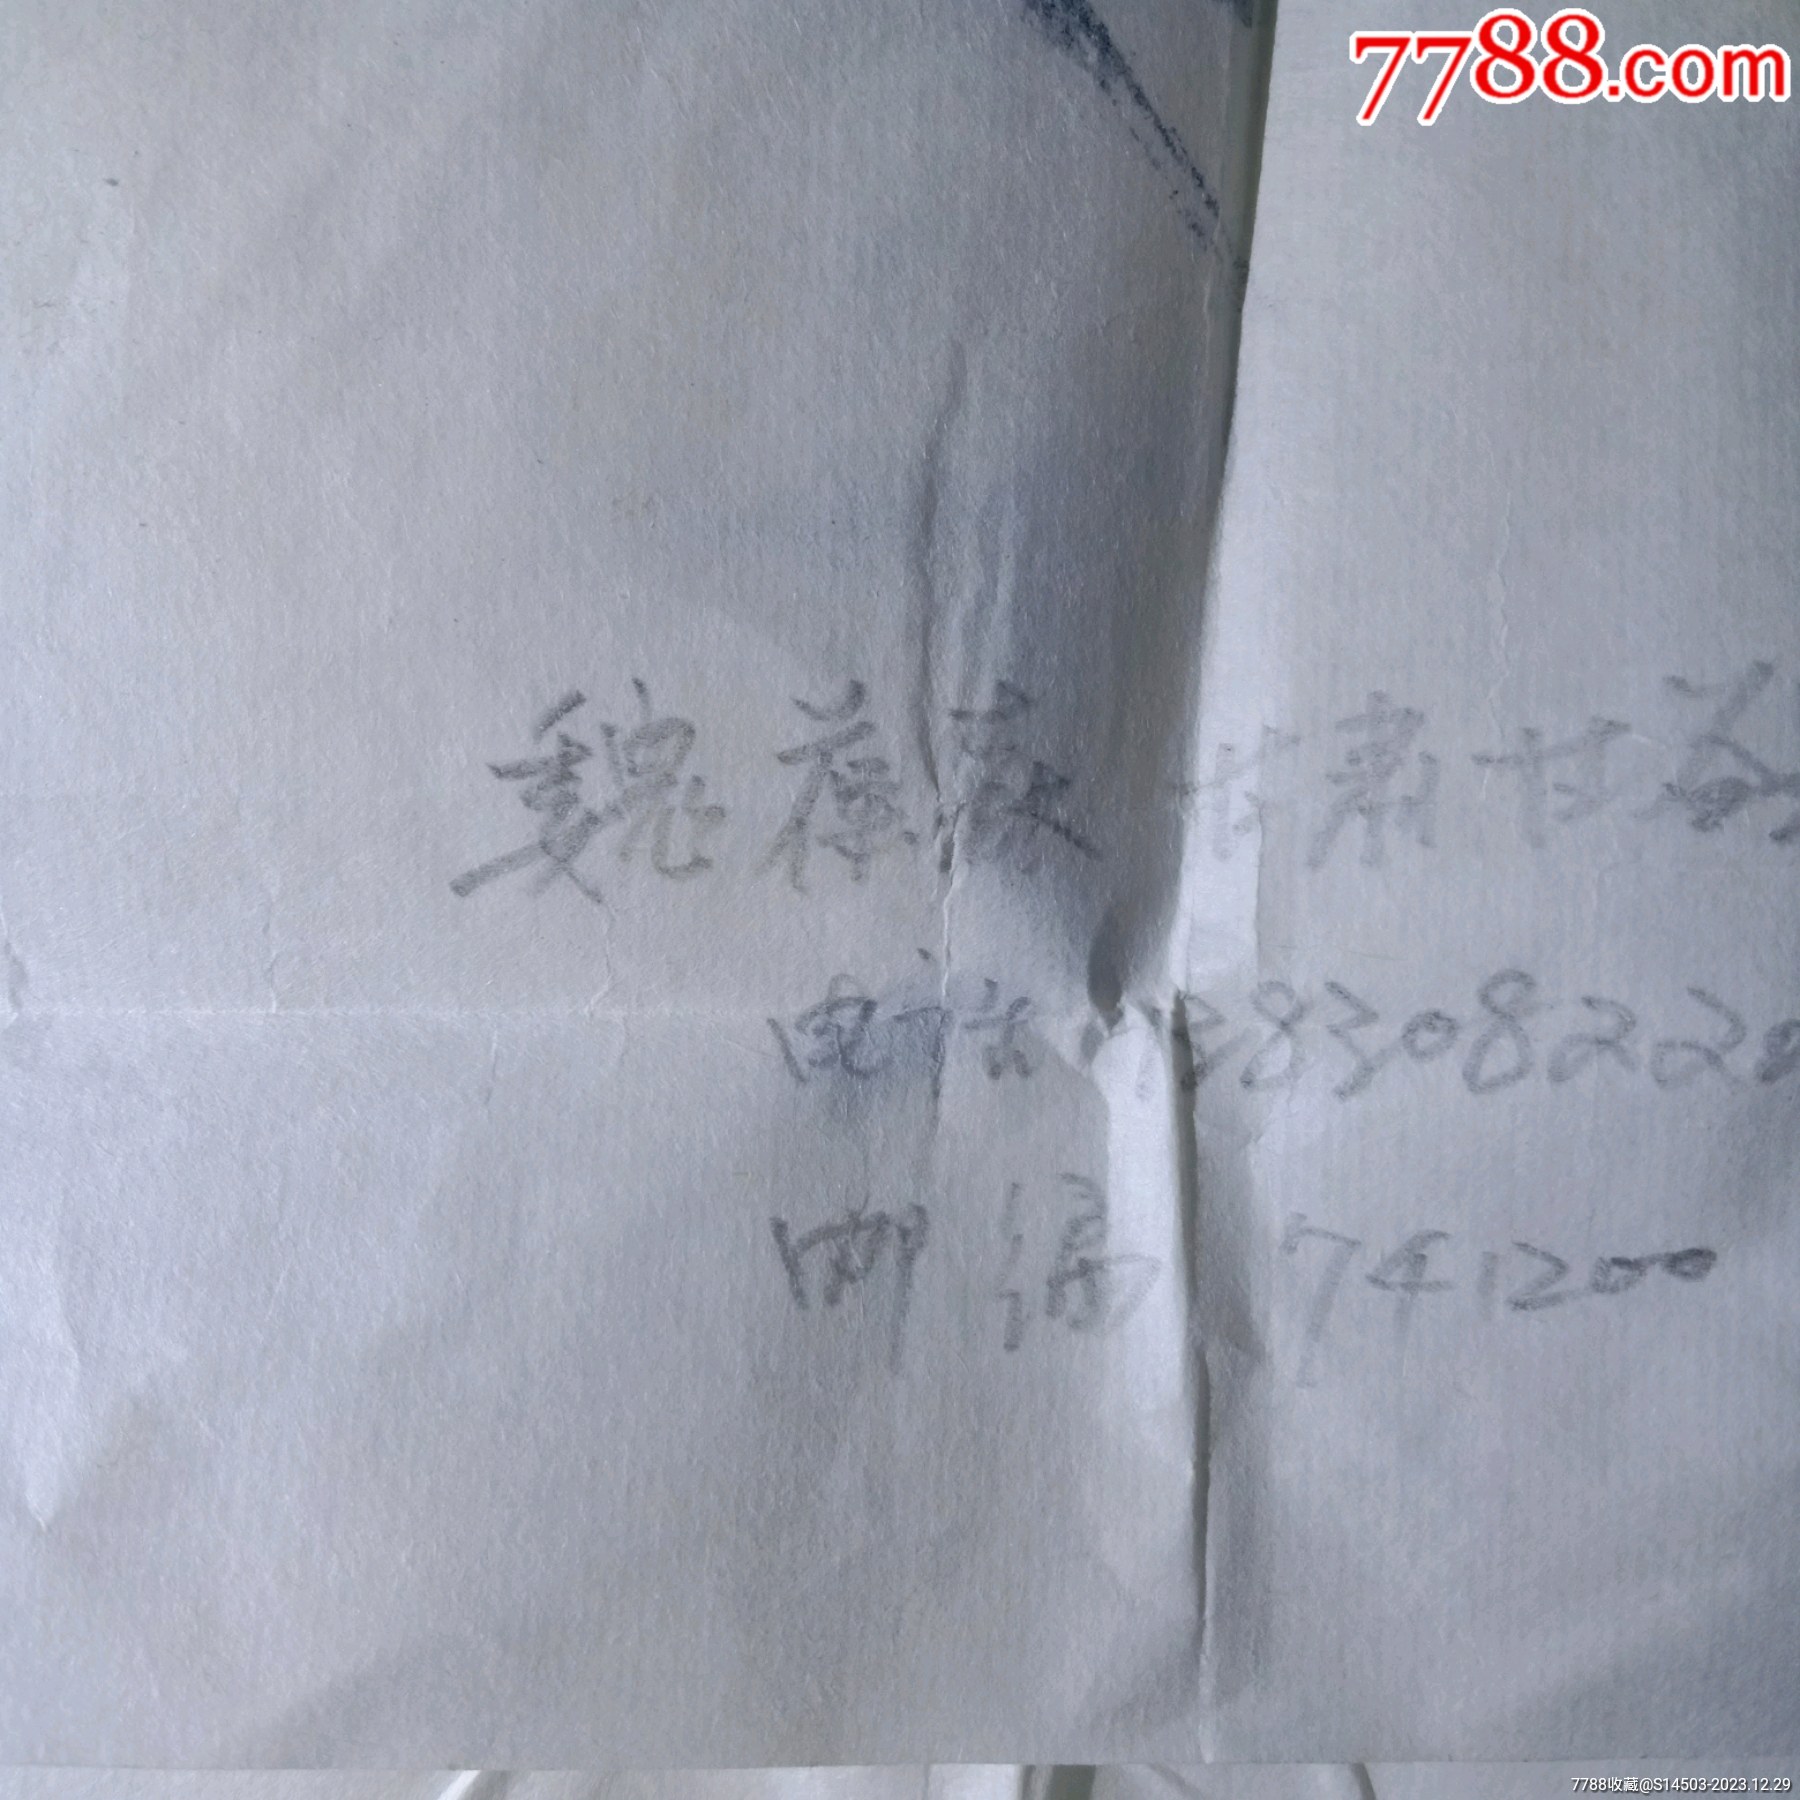 7788.com
魏葆 甘肃甘谷
电话 138308220
邮编 741200
7788收藏@S14503-2023.12.29